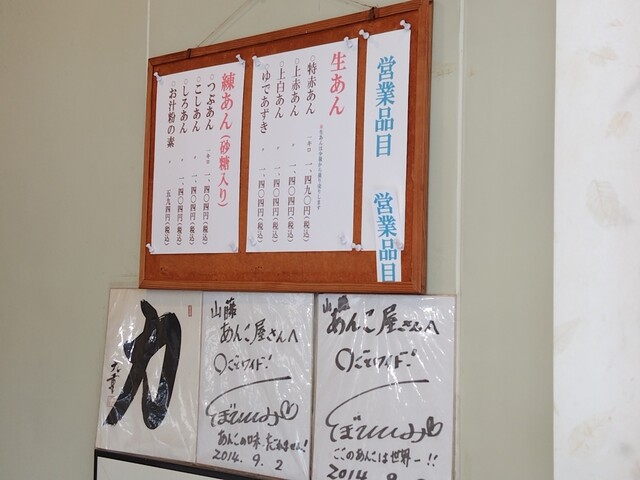 営業品目
営業品目
生あん
※生あんは予約から取り出しします
○特赤あん 一キロ 一、四九〇円(税込)
○上赤あん 〃 一、四〇四円(税込)
○上白あん 〃 一、四〇四円(税込)
○ゆであずき 〃 一、四〇四円(税込)
練あん(砂糖入り)
○つぶあん 一キロ 一、四〇四円(税込)
○こしあん 〃 一、四〇四円(税込)
○しろあん 〃 一、四〇四円(税込)
○お汁粉の素 〃 五九四円(税込)
力
山藤
あんこ屋さんへ
ワイド!
あんこの味、
2014.9.2
山藤
あんこ屋さんへ
ワイド!
ここのあんこは世界一!!
2014.9